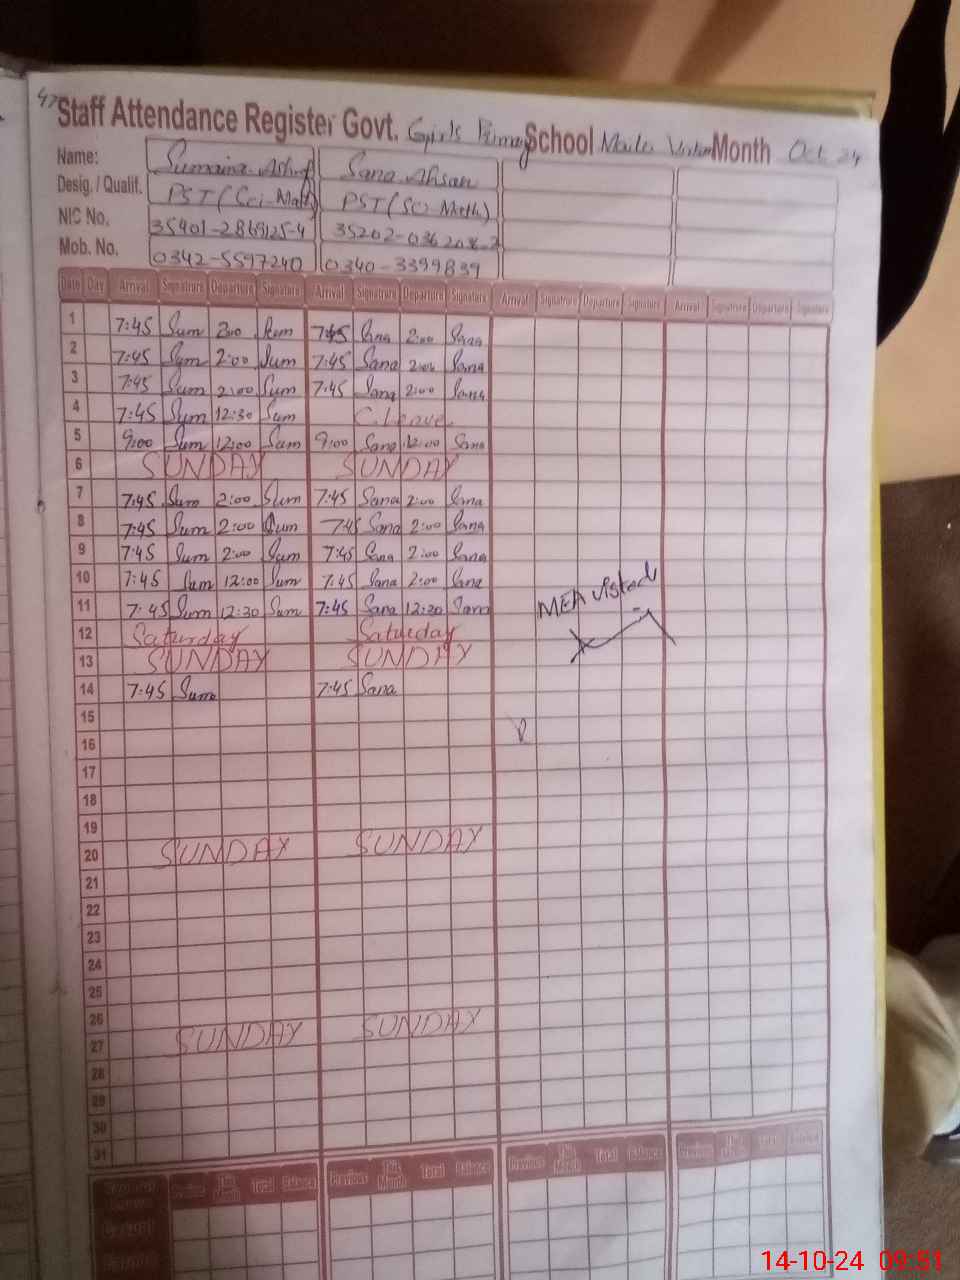 47
Staff Attendance Register Govt. Girls Primary School Month Oct 24
Name: Sumaira Ashraf Sana Ahsan
Desig. / Qualif. PST (Sci-Math) PST (Sci-Math)
NIC No. 35401-2869125-4 35202-
Mob. No. 0342-5597240 0340-3399839
Date Day Arrival Signature Departure Signature Arrival Signature Departure Signature Arrival Signature Departure Signature Arrival Signature Departure Signature
1 7:45 Sum 2:00 Sum 7:45 Sana 2:00 Sana
2 7:45 Sum 2:00 Sum 7:45 Sana 2:00 Sana
3 7:45 Sum 2:00 Sum 7:45 Sana 2:00 Sana
4 7:45 Sum 12:30 Sum C.Leave
5 9:00 Sum 12:00 Sum 9:00 Sana 12:00 Sana
6 SUNDAY SUNDAY
7 7:45 Sum 2:00 Sum 7:45 Sana 2:00 Sana
8 7:45 Sum 2:00 Sum 7:45 Sana 2:00 Sana
9 7:45 Sum 2:00 Sum 7:45 Sana 2:00 Sana
10 7:45 Sum 12:00 Sum 7:45 Sana 2:00 Sana
11 7:45 Sum 12:30 Sum 7:45 Sana 12:30 Sana MEA visted
12 Saturday Saturday
13 SUNDAY SUNDAY
14 7:45 Sum 7:45 Sana
15
16
17
18
19
20 SUNDAY SUNDAY
21
22
23
24
25
26
27 SUNDAY SUNDAY
28
29
30
31
Previous This Month Total Balance Previous This Month Total Balance Previous This Month Total Balance Previous This Month Total Balance
14-10-24 09:51